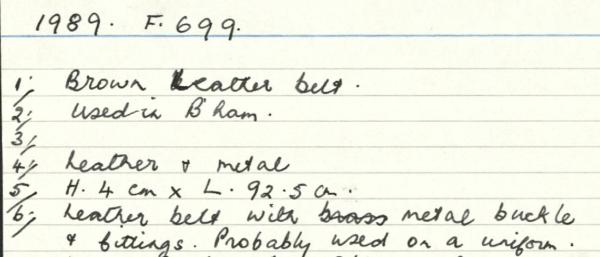 1989. F. 699.
1; Brown Leather belt.
2; Used in B'ham.
3;
4; Leather & metal
5, H. 4 cm x L. 92.5 cm.
6; Leather belt with brass metal buckle
& fittings. Probably used on a uniform.